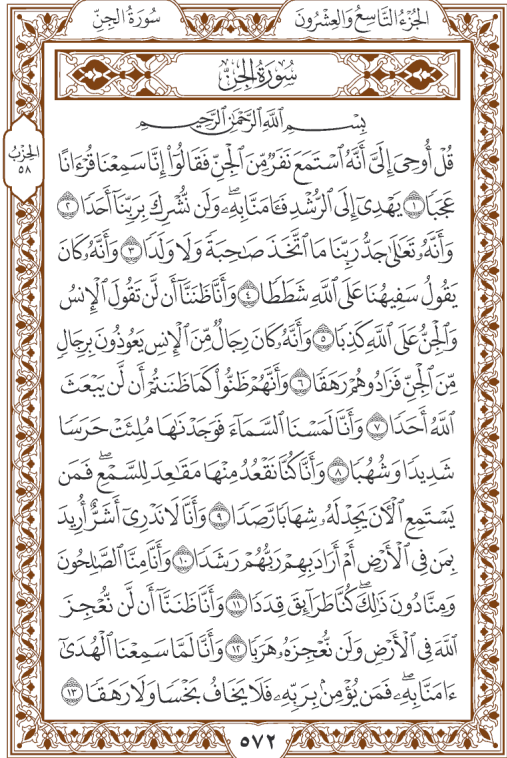 الجُزْءُ التَّاسِعُ وَالعِشْرُونَ
سُورَةُ الجِنِّ
سُورَةُ الجِنِّ
بِسْمِ ٱللَّهِ ٱلرَّحْمَٰنِ ٱلرَّحِيمِ
قُلْ أُوحِىَ إِلَىَّ أَنَّهُ ٱسْتَمَعَ نَفَرٌ مِّنَ ٱلْجِنِّ فَقَالُوٓا۟ إِنَّا سَمِعْنَا قُرْءَانًا
عَجَبًا ١ يَهْدِىٓ إِلَى ٱلرُّشْدِ فَـَٔامَنَّا بِهِۦ ۖ وَلَن نُّشْرِكَ بِرَبِّنَآ أَحَدًا ٢
وَأَنَّهُۥ تَعَٰلَىٰ جَدُّ رَبِّنَا مَا ٱتَّخَذَ صَٰحِبَةً وَلَا وَلَدًا ٣ وَأَنَّهُۥ كَانَ
يَقُولُ سَفِيهُنَا عَلَى ٱللَّهِ شَطَطًا ٤ وَأَنَّا ظَنَنَّآ أَن لَّن تَقُولَ ٱلْإِنسُ
وَٱلْجِنُّ عَلَى ٱللَّهِ كَذِبًا ٥ وَأَنَّهُۥ كَانَ رِجَالٌ مِّنَ ٱلْإِنسِ يَعُوذُونَ بِرِجَالٍ
مِّنَ ٱلْجِنِّ فَزَادُوهُمْ رَهَقًا ٦ وَأَنَّهُمْ ظَنُّوا۟ كَمَا ظَنَنتُمْ أَن لَّن يَبْعَثَ
ٱللَّهُ أَحَدًا ٧ وَأَنَّا لَمَسْنَا ٱلسَّمَآءَ فَوَجَدْنَٰهَا مُلِئَتْ حَرَسًا
شَدِيدًا وَشُهُبًا ٨ وَأَنَّا كُنَّا نَقْعُدُ مِنْهَا مَقَٰعِدَ لِلسَّمْعِ ۖ فَمَن
يَسْتَمِعِ ٱلْـَٔانَ يَجِدْ لَهُۥ شِهَابًا رَّصَدًا ٩ وَأَنَّا لَا نَدْرِىٓ أَشَرٌّ أُرِيدَ
بِمَن فِى ٱلْأَرْضِ أَمْ أَرَادَ بِهِمْ رَبُّهُمْ رَشَدًا ١٠ وَأَنَّا مِنَّا ٱلصَّٰلِحُونَ
وَمِنَّا دُونَ ذَٰلِكَ ۖ كُنَّا طَرَآئِقَ قِدَدًا ١١ وَأَنَّا ظَنَنَّآ أَن لَّن نُّعْجِزَ
ٱللَّهَ فِى ٱلْأَرْضِ وَلَن نُّعْجِزَهُۥ هَرَبًا ١٢ وَأَنَّا لَمَّا سَمِعْنَا ٱلْهُدَىٰٓ
ءَامَنَّا بِهِۦ ۖ فَمَن يُؤْمِنۢ بِرَبِّهِۦ فَلَا يَخَافُ بَخْسًا وَلَا رَهَقًا ١٣
الحِزْبُ
٥٨
٥٧٢